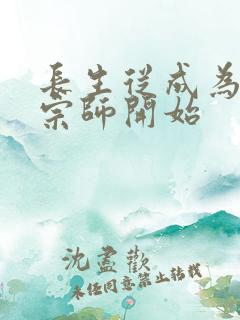 長生從成為
宗師開始
沈盡歡
未經同意禁止轉載